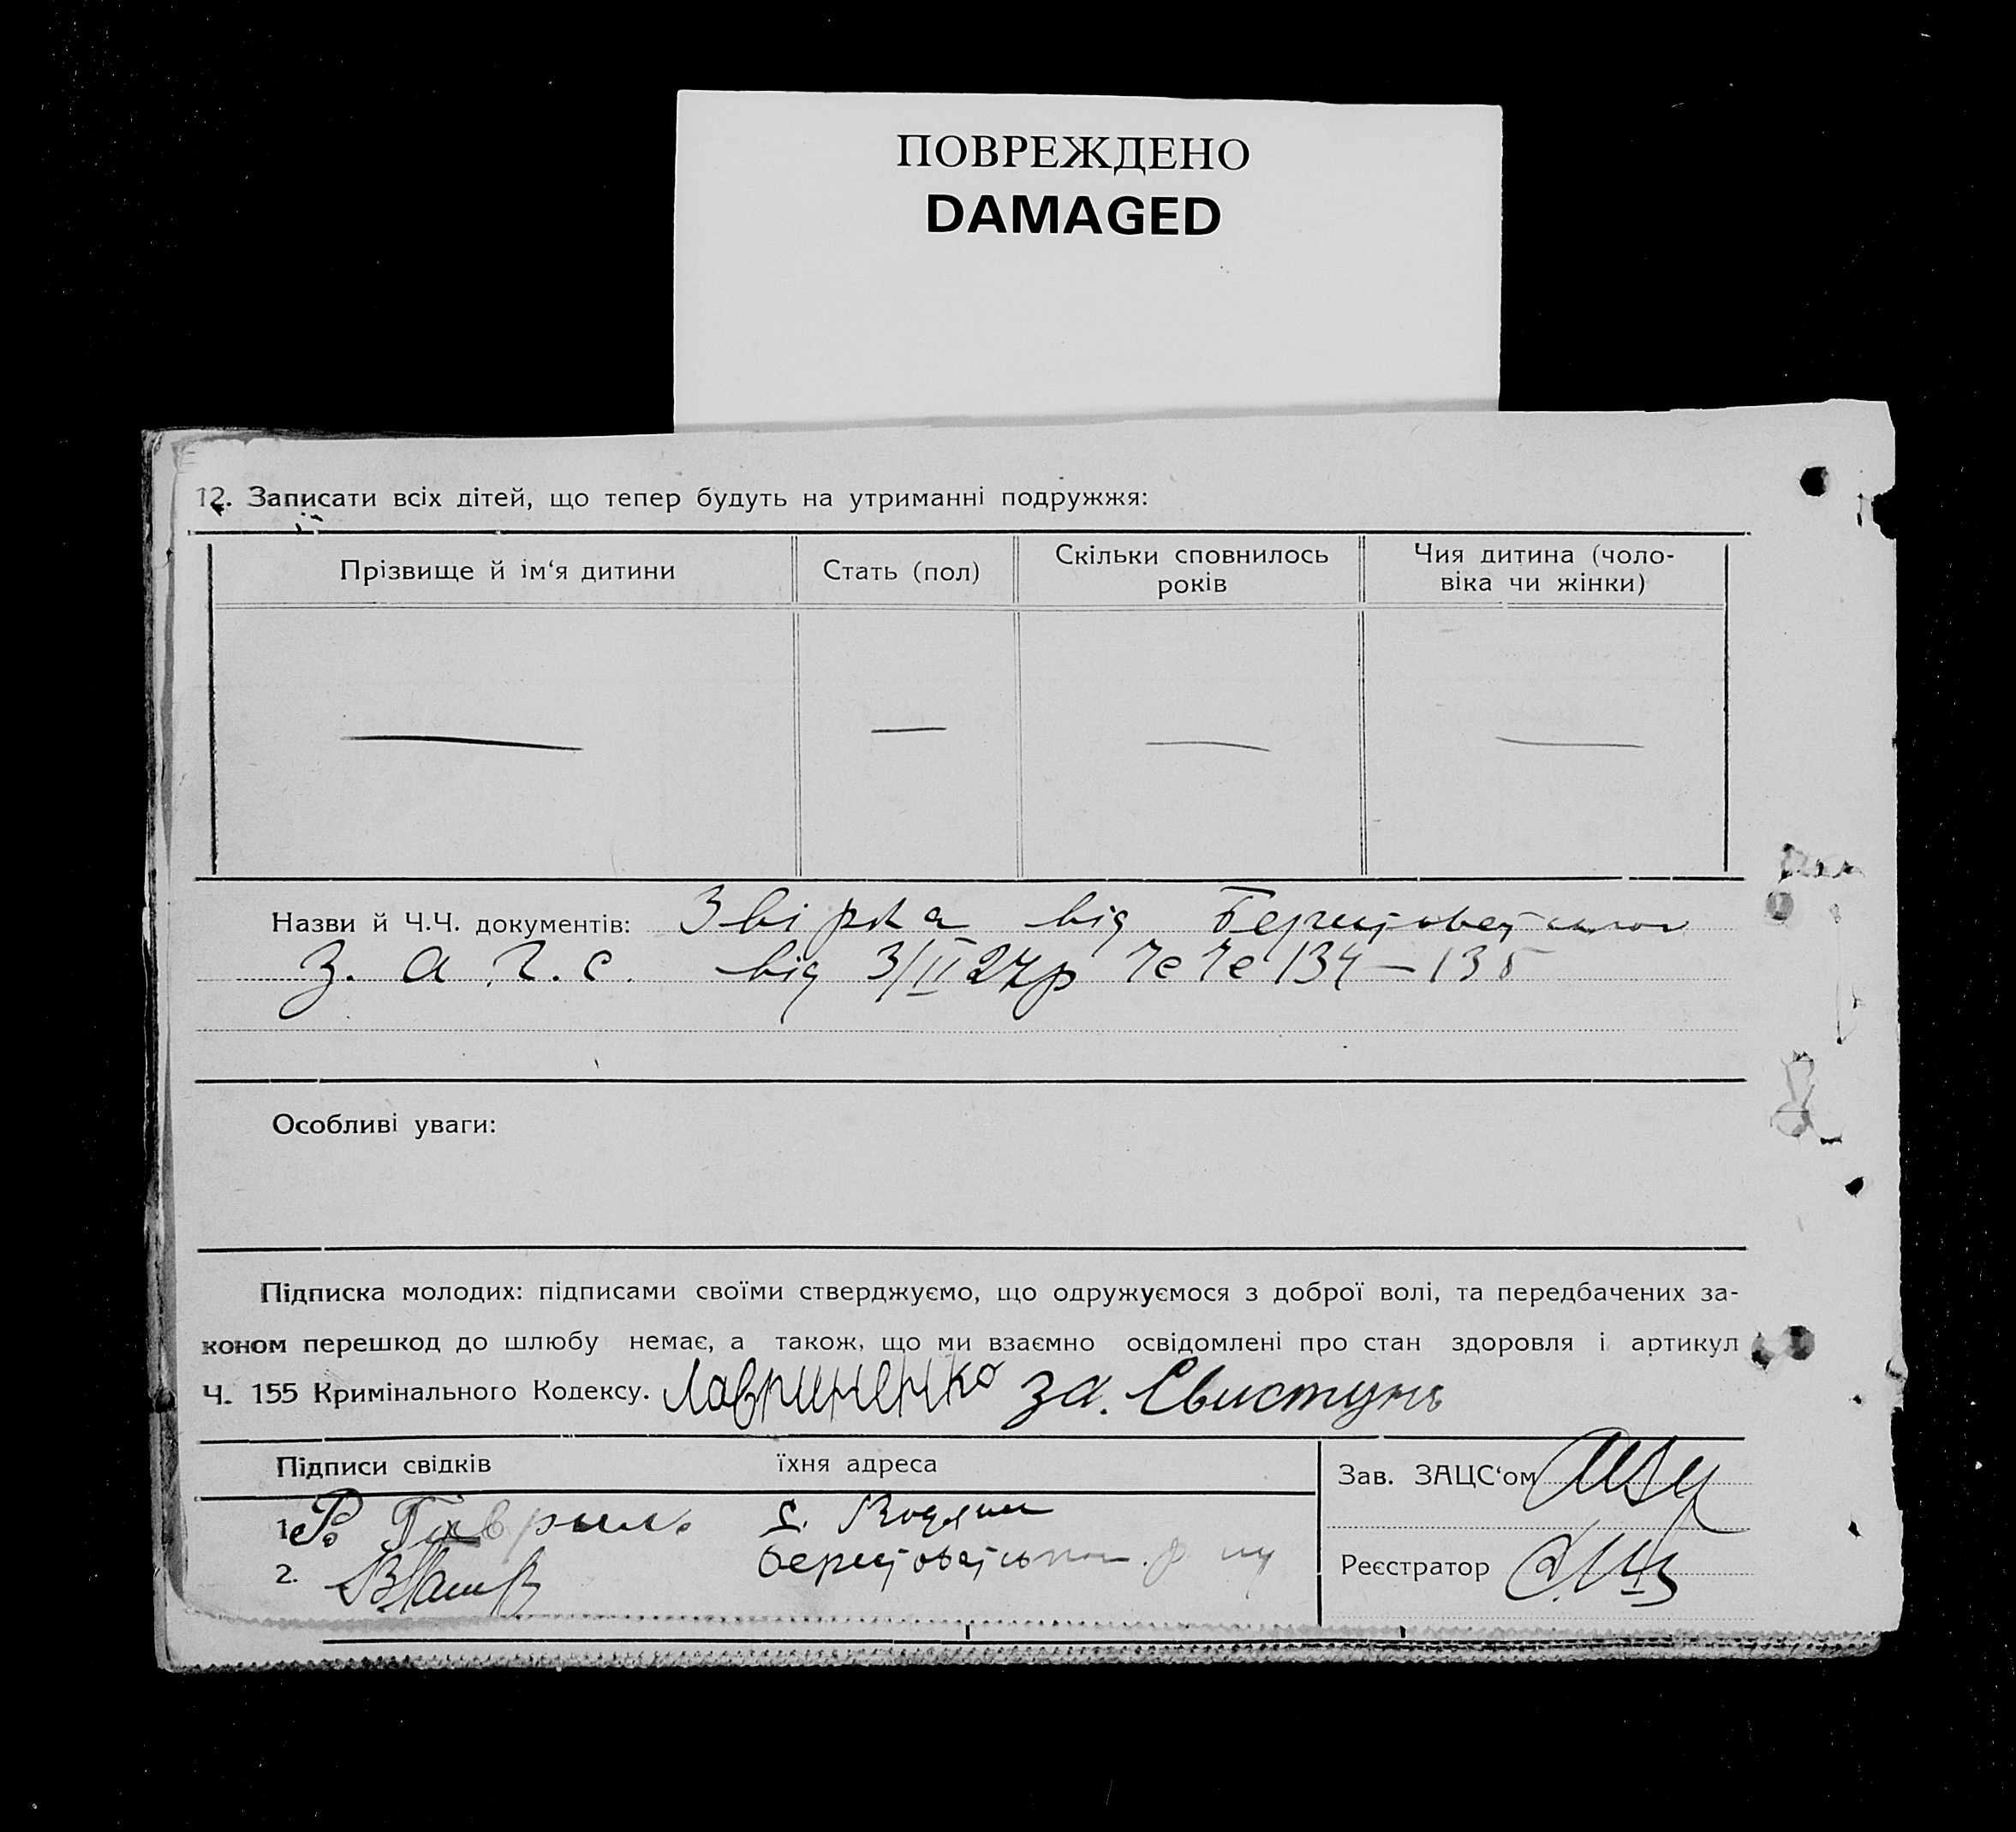 ПОВРЕЖДЕНО
DAMAGED
12. Записати всіх дітей, що тепер будуть на утриманні подружжя:
Прізвище й ім‘я дитини
Стать (пол)
Скільки сповнилось
років
Чия дитина (чоло-
віка чи жінки)
Назви й Ч.Ч. документів: Звірка від
З. А. Г. С. від 3/II 27р № № 134 — 135
Особливі уваги:
Підписка молодих: підписами своїми стверджуємо, що одружуємося з доброї волі, та передбачених за-
коном перешкод до шлюбу немає, а також, що ми взаємно освідомлені про стан здоровля і артикул
Ч. 155 Кримінального Кодексу. Лавриненко за. Свистунь
Підписи свідків
їхня адреса
Зав. ЗАЦС‘ом
1.
2.
Реєстратор